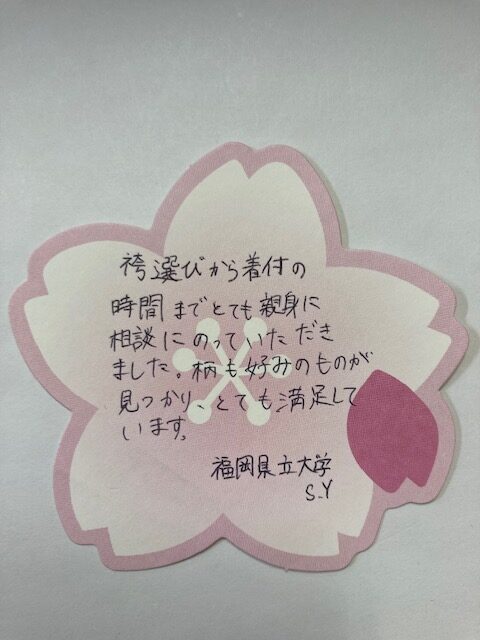 袴選びから着付の
時間までとても親身に
相談にのっていただき
ました。柄も好みのものが
見つかり、とても満足して
います。
福岡県立大学
S.Y